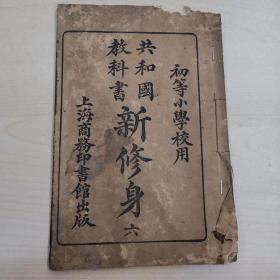 初等小學校用
共和國
教科書
新修身
六
上海商務印書館出版